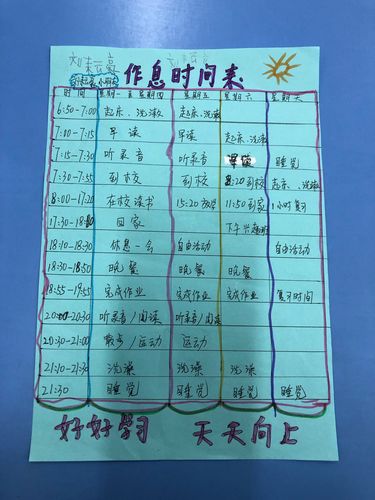 作息时间表
时间 星期一至星期四 星期五 星期六 星期天
6:50-7:00 起床、洗漱 起床、洗漱
7:00-7:15 早读 早读 起床、洗漱
7:15-7:30 听录音 听录音 早读 睡觉
7:30-7:55 到校 到校 8:20到校 起床、洗漱
8:00-17:20 在校读书 15:20放学 11:50到家 1小时复习
17:30-18:10 回家 下午兴趣班
18:10-18:30 休息一会 自由活动 自由活动
18:30-18:50 晚餐 晚餐 晚餐
18:55-19:55 完成作业 完成作业 完成作业 复习时间
20:00-20:30 听录音/阅读 听录音/阅读
20:30-21:00 散步/运动 运动
21:10-21:30 洗澡 洗澡 洗澡
21:30 睡觉 睡觉 睡觉 睡觉
好好学习 天天向上